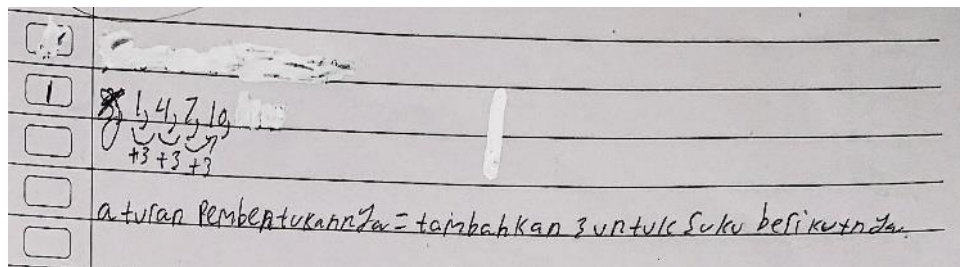 1
1, 4, 7, 10,
+3 +3 +3
aturan Pembentukannya = tambahkan 3 untuk suku berikutnya.